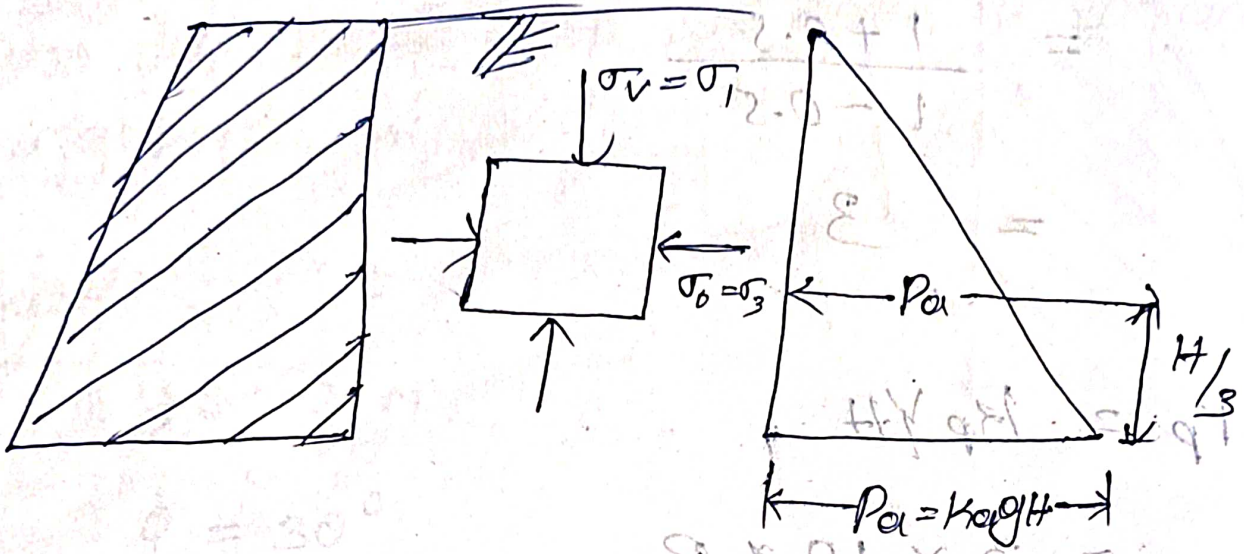 σv = σ1
σo = σ3
Pa
H/3
Pa = KagH